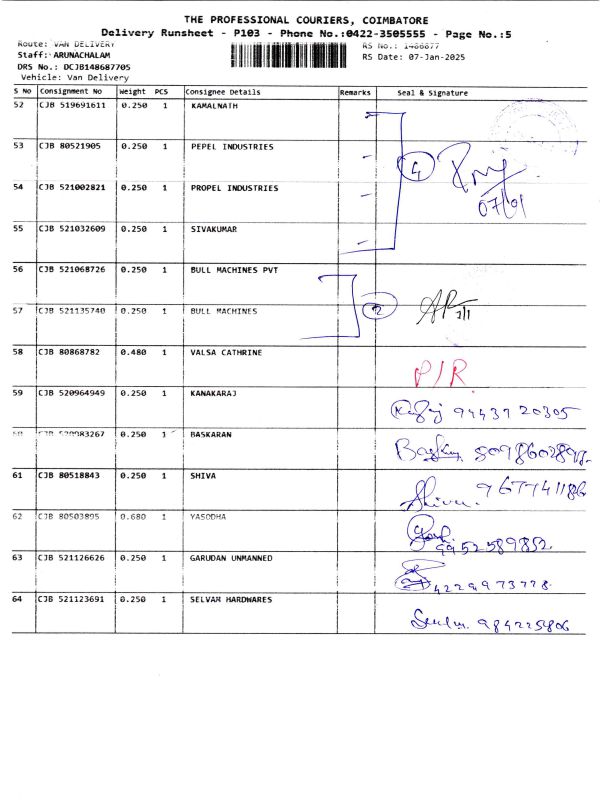 THE PROFESSIONAL COURIERS, COIMBATORE
Delivery Runsheet - P103 - Phone No.:0422-3505555 - Page No.:5
Route: VAN DELIVERY RS No.: 1486877
Staff: ARUNACHALAM RS Date: 07-Jan-2025
DRS No.: DCJB148687705
Vehicle: Van Delivery
S No Consignment No Weight PCS Consignee Details Remarks Seal & Signature
52 CJB 519691611 0.250 1 KAMALNATH
53 CJB 80521905 0.250 1 PEPEL INDUSTRIES
4
54 CJB 521002821 0.250 1 PROPEL INDUSTRIES
07/01
55 CJB 521032609 0.250 1 SIVAKUMAR
56 CJB 521068726 0.250 1 BULL MACHINES PVT
57 CJB 521135740 0.250 1 BULL MACHINES 2
58 CJB 80868782 0.480 1 VALSA CATHRINE P/R
59 CJB 520964949 0.250 1 KANAKARAJ 9443720305
60 CJB 520983267 0.250 1 BASKARAN
61 CJB 80518843 0.250 1 SHIVA Shiva. 967741186
62 CJB 80503895 0.680 1 YASODHA 9952589852
63 CJB 521126626 0.250 1 GARUDAN UNMANNED
64 CJB 521123691 0.250 1 SELVAM HARDWARES 984225806